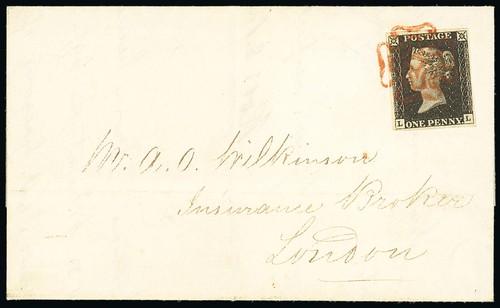 POSTAGE
L ONE PENNY. L
Mr. A. O. Wilkinson
Insurance Broker
London